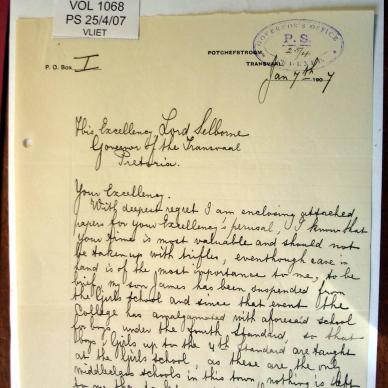 VOL 1068
PS 25/4/07
VLIET
GOVERNOR'S OFFICE
P.S.
POTCHEFSTROOM,
TRANSVAAL
P. O. Box I
Jan 7th 1907
His Excellency Lord Selborne
Governor of the Transvaal
Pretoria.
Your Excellency.
With deepest regret I am enclosing attached
papers for your Excellency's perusal, I know that
Your time is most valuable and should not
be taken up with trifles, eventhough case in
hand is of the most importance to me, to be
brief my son James has been suspended from
the Girls School and since that event the
College has amalgamated with aforesaid school
for boys under the fourth Standard, so that
boys & Girls up to the 4th Standard are taught
at the Girls School as these are the only
middleclass schools in this town, nothing is left
to me